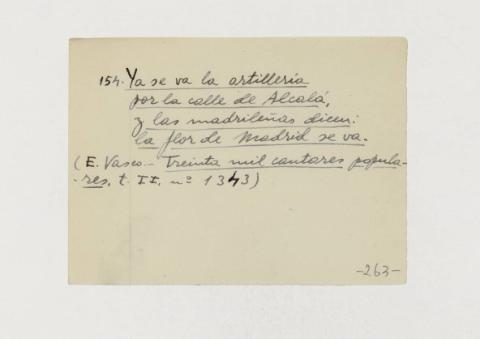 154. Ya se va la artillería
por la calle de Alcalá,
y las madrileñas dicen:
la flor de Madrid se va.
(E. Vasco - Treinta mil cantares popula-
-res, t. II, nº 1343)
-263-